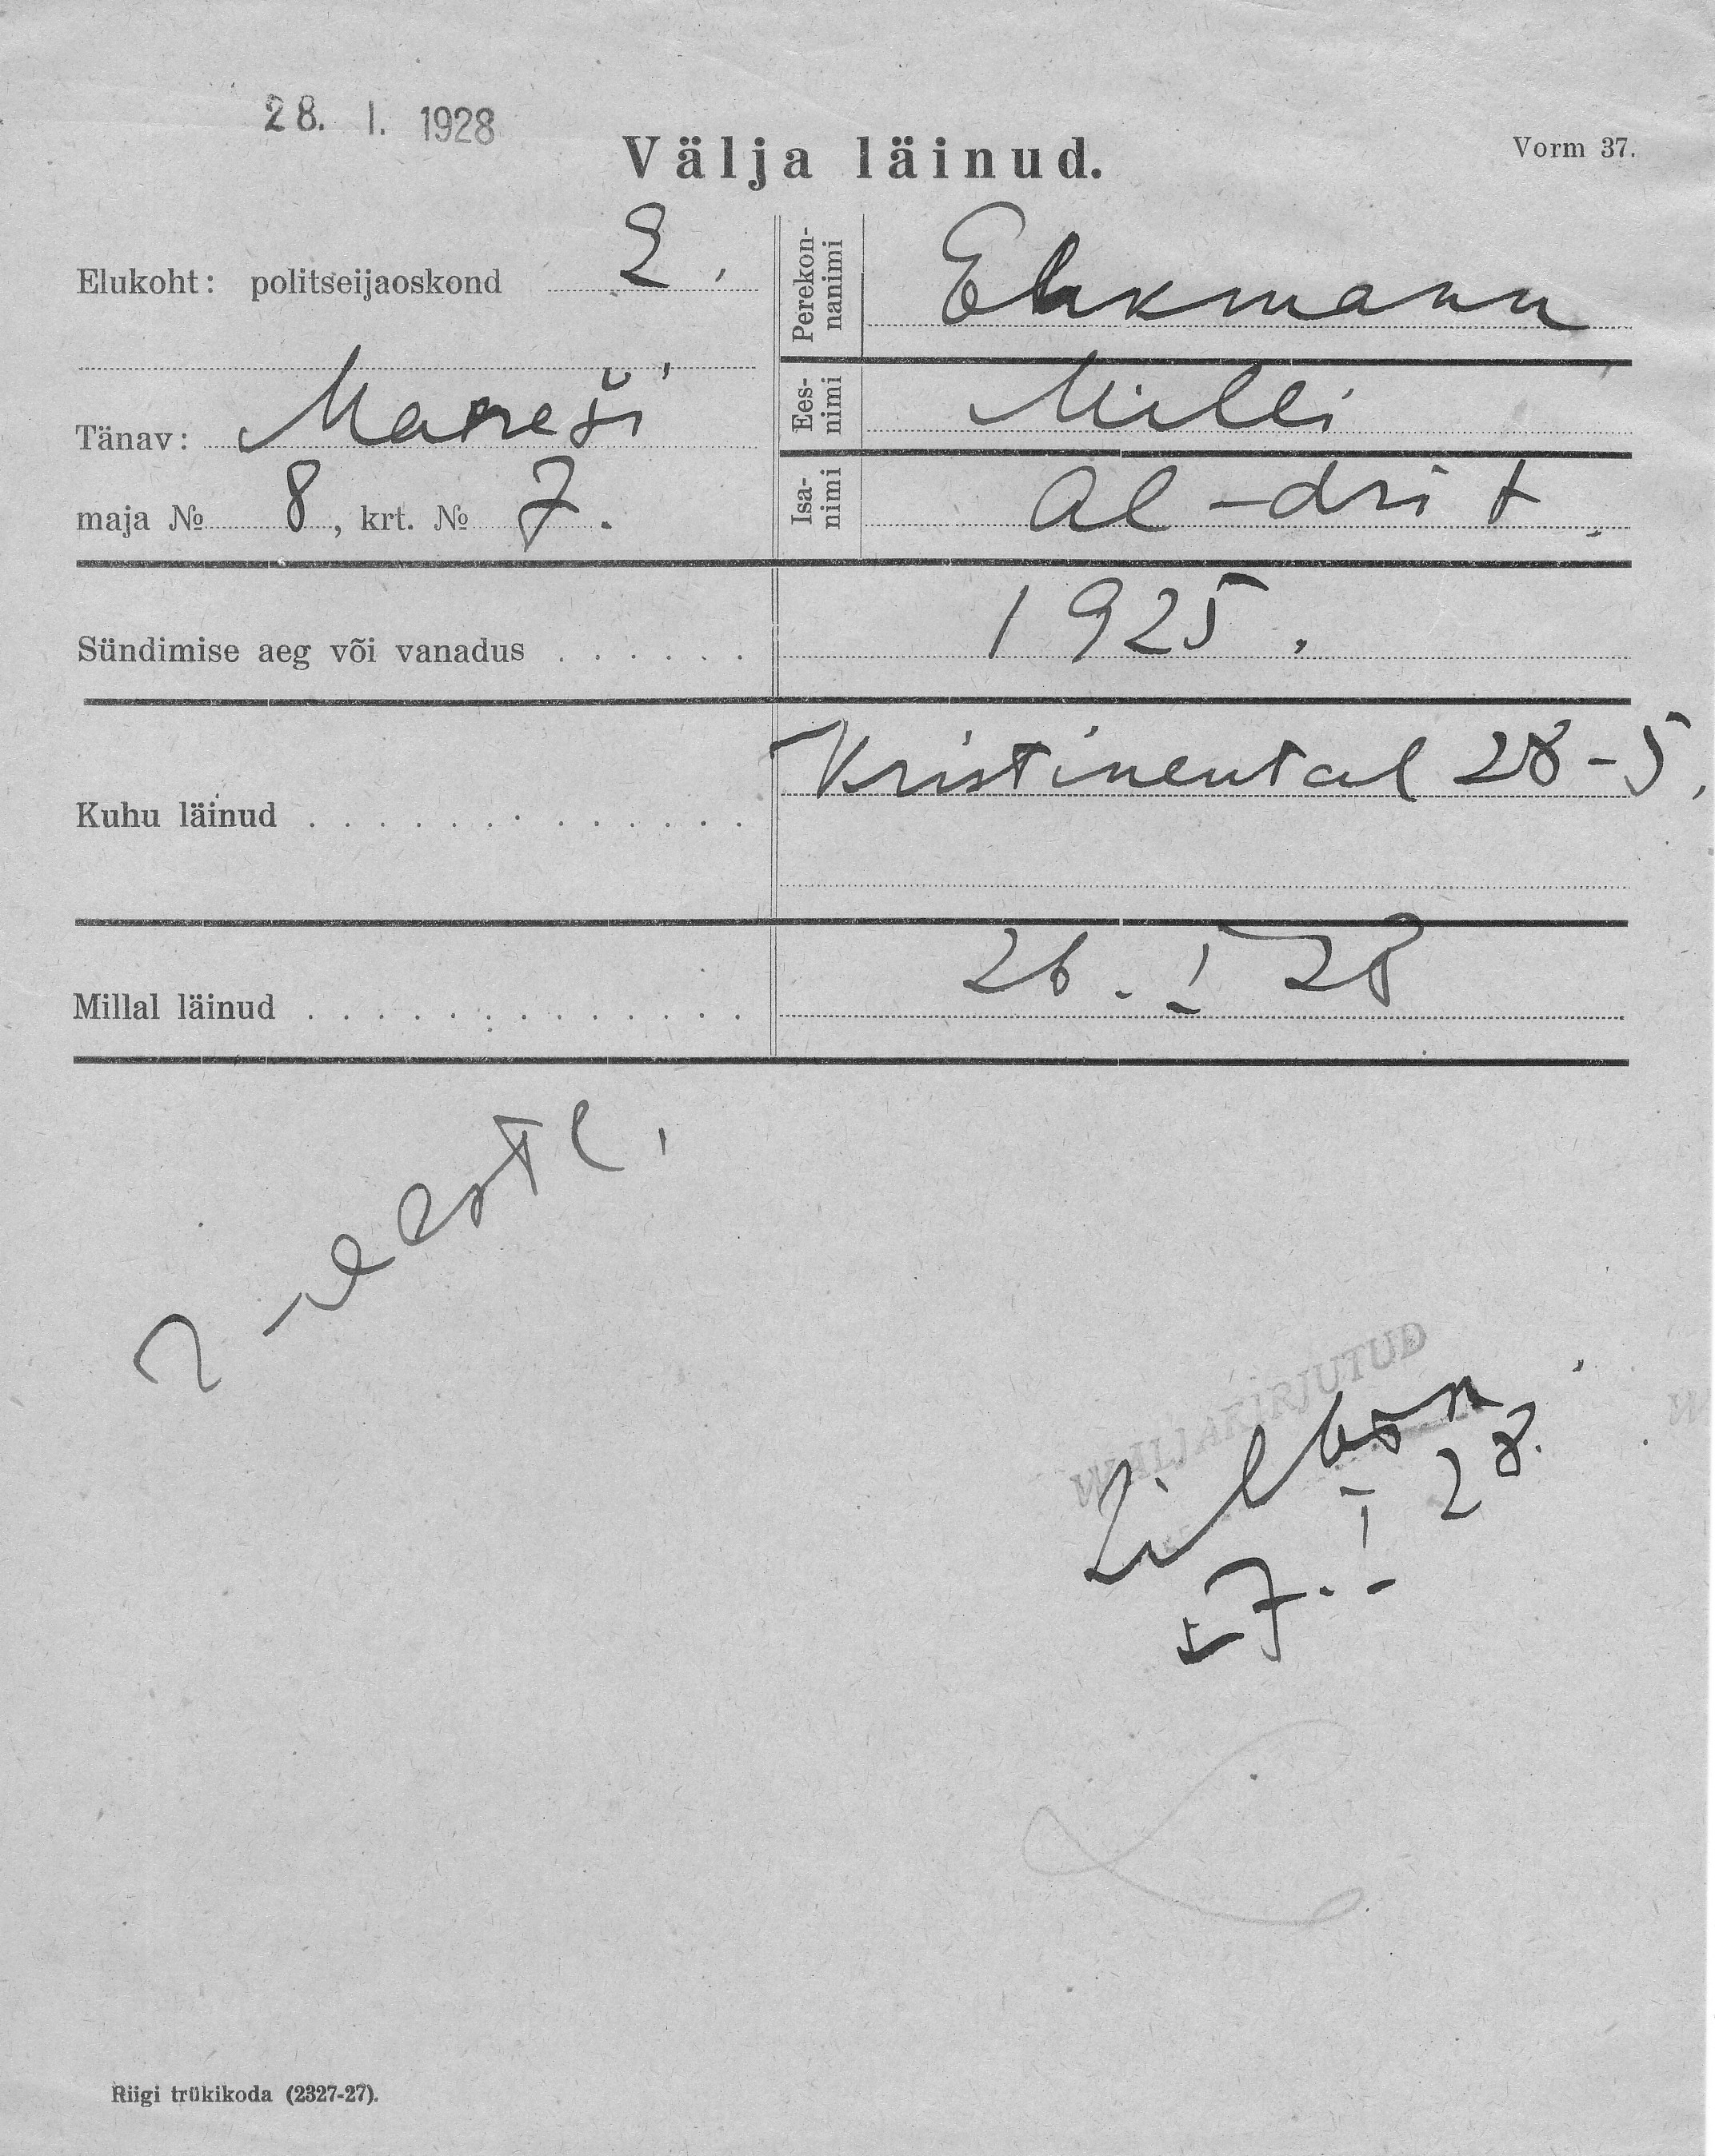 28. I. 1928
Välja läinud.
Vorm 37.
Elukoht: politseijaoskond 2.
Tänav:
maja № 8, krt. № 7.
Perekonnanimi Ehkmann
Eesnimi Milli
Isanimi Al-dri t.
Sündimise aeg või vanadus 1925.
Kuhu läinud Kristinental 28-5.
Millal läinud 26. I 28
WÄLJAKIRJUTUD
27. I 28.
Riigi trükikoda (2327-27).